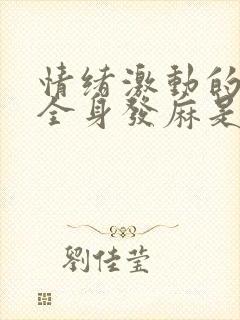 情緒激動的
全身發麻是
劉佳莹